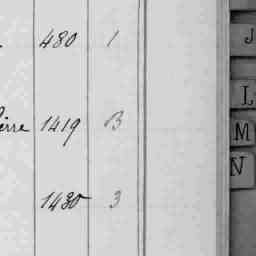 480 1
erre 1419 B
1430 3
J
L
M
N